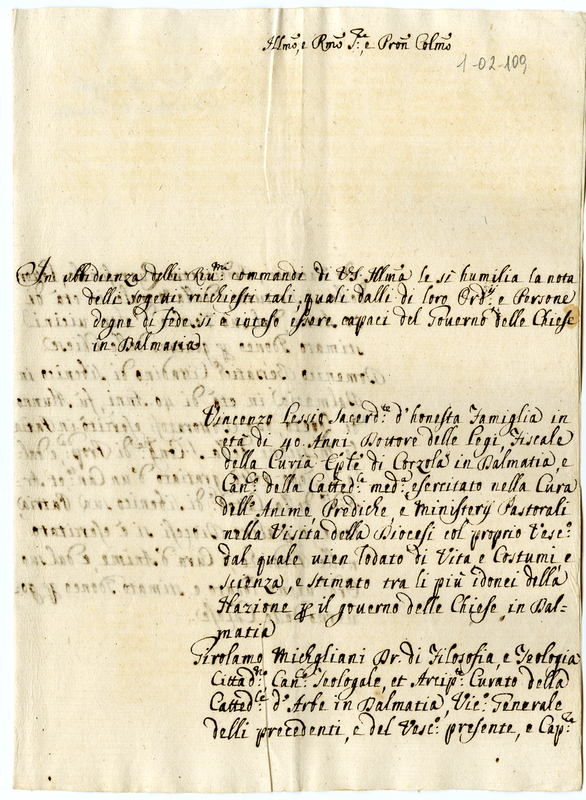 Illmo, e Rmo Sre, e Pron Colmo
1-02-109
In ubbidienza delli Riu.mi commandi di VS Illma le si humilia la nota
delli sogetti ricchiesti tali, quali dalli di loro Ord.ij e Persone
degne di fede si è inteso essere capaci del Governo delle Chiese
in Dalmatia
Vincenzo Lessio Sacerd.te d'honesta Famiglia in
età di 40 Anni Dottore delle Legi, Fiscale
della Curia Ep̄le di Corzola in Dalmatia, e
Can.o della Catted.le med.a esercitato nella Cura
dell'Anime Prediche e Ministerij Pastorali
nella Visita della Diocesi col proprio Vesc.o
dal quale vien lodato di Vita e Costumi e
Scienza, e stimato tra li più idonei della
Nazione p il governo delle Chiese in Dal=
matia
Girolamo Michgliani Dr. di Filosofia, e Teologia
Cittad.o Can.o Teologale, et Arcip.e Curato della
Catted.le d'Arbe in Dalmatia, Vic.o Generale
delli precedenti, e del Vesc.o presente, e Cap.re